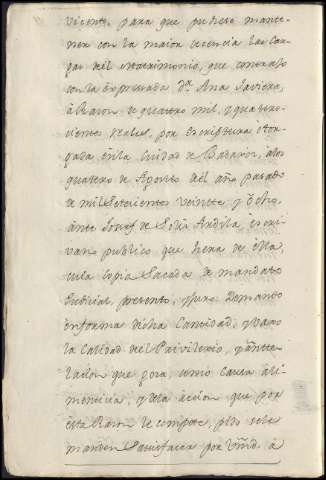 vicente, para que pudiese mante-
ner con la maior decencia las Car-
gas del Matrimonio, que contrajo
con la expresada Dª. Ana Javiera,
â Razon de quattro mil, y quatro-
cientos reales, por escriptura otor-
gada en la Ciudad de Badajoz, alos
quattro de Agosto del año pasado
de mil Setecientos veinte y Ocho,
ante Josef de Soliz Ardila, escri-
vano publico que hera de ella
cuia copia Sacada de mandato
Judicial, presento, y juro Demando
en forma dicha Cantidad, y vajo
la Calidad del Privilexio, y ante-
lacion que goza, como Causa ali-
menticia, y de la accion que por
esta Razon le compete, pido se le
manden Satisfacer por Vmd. â